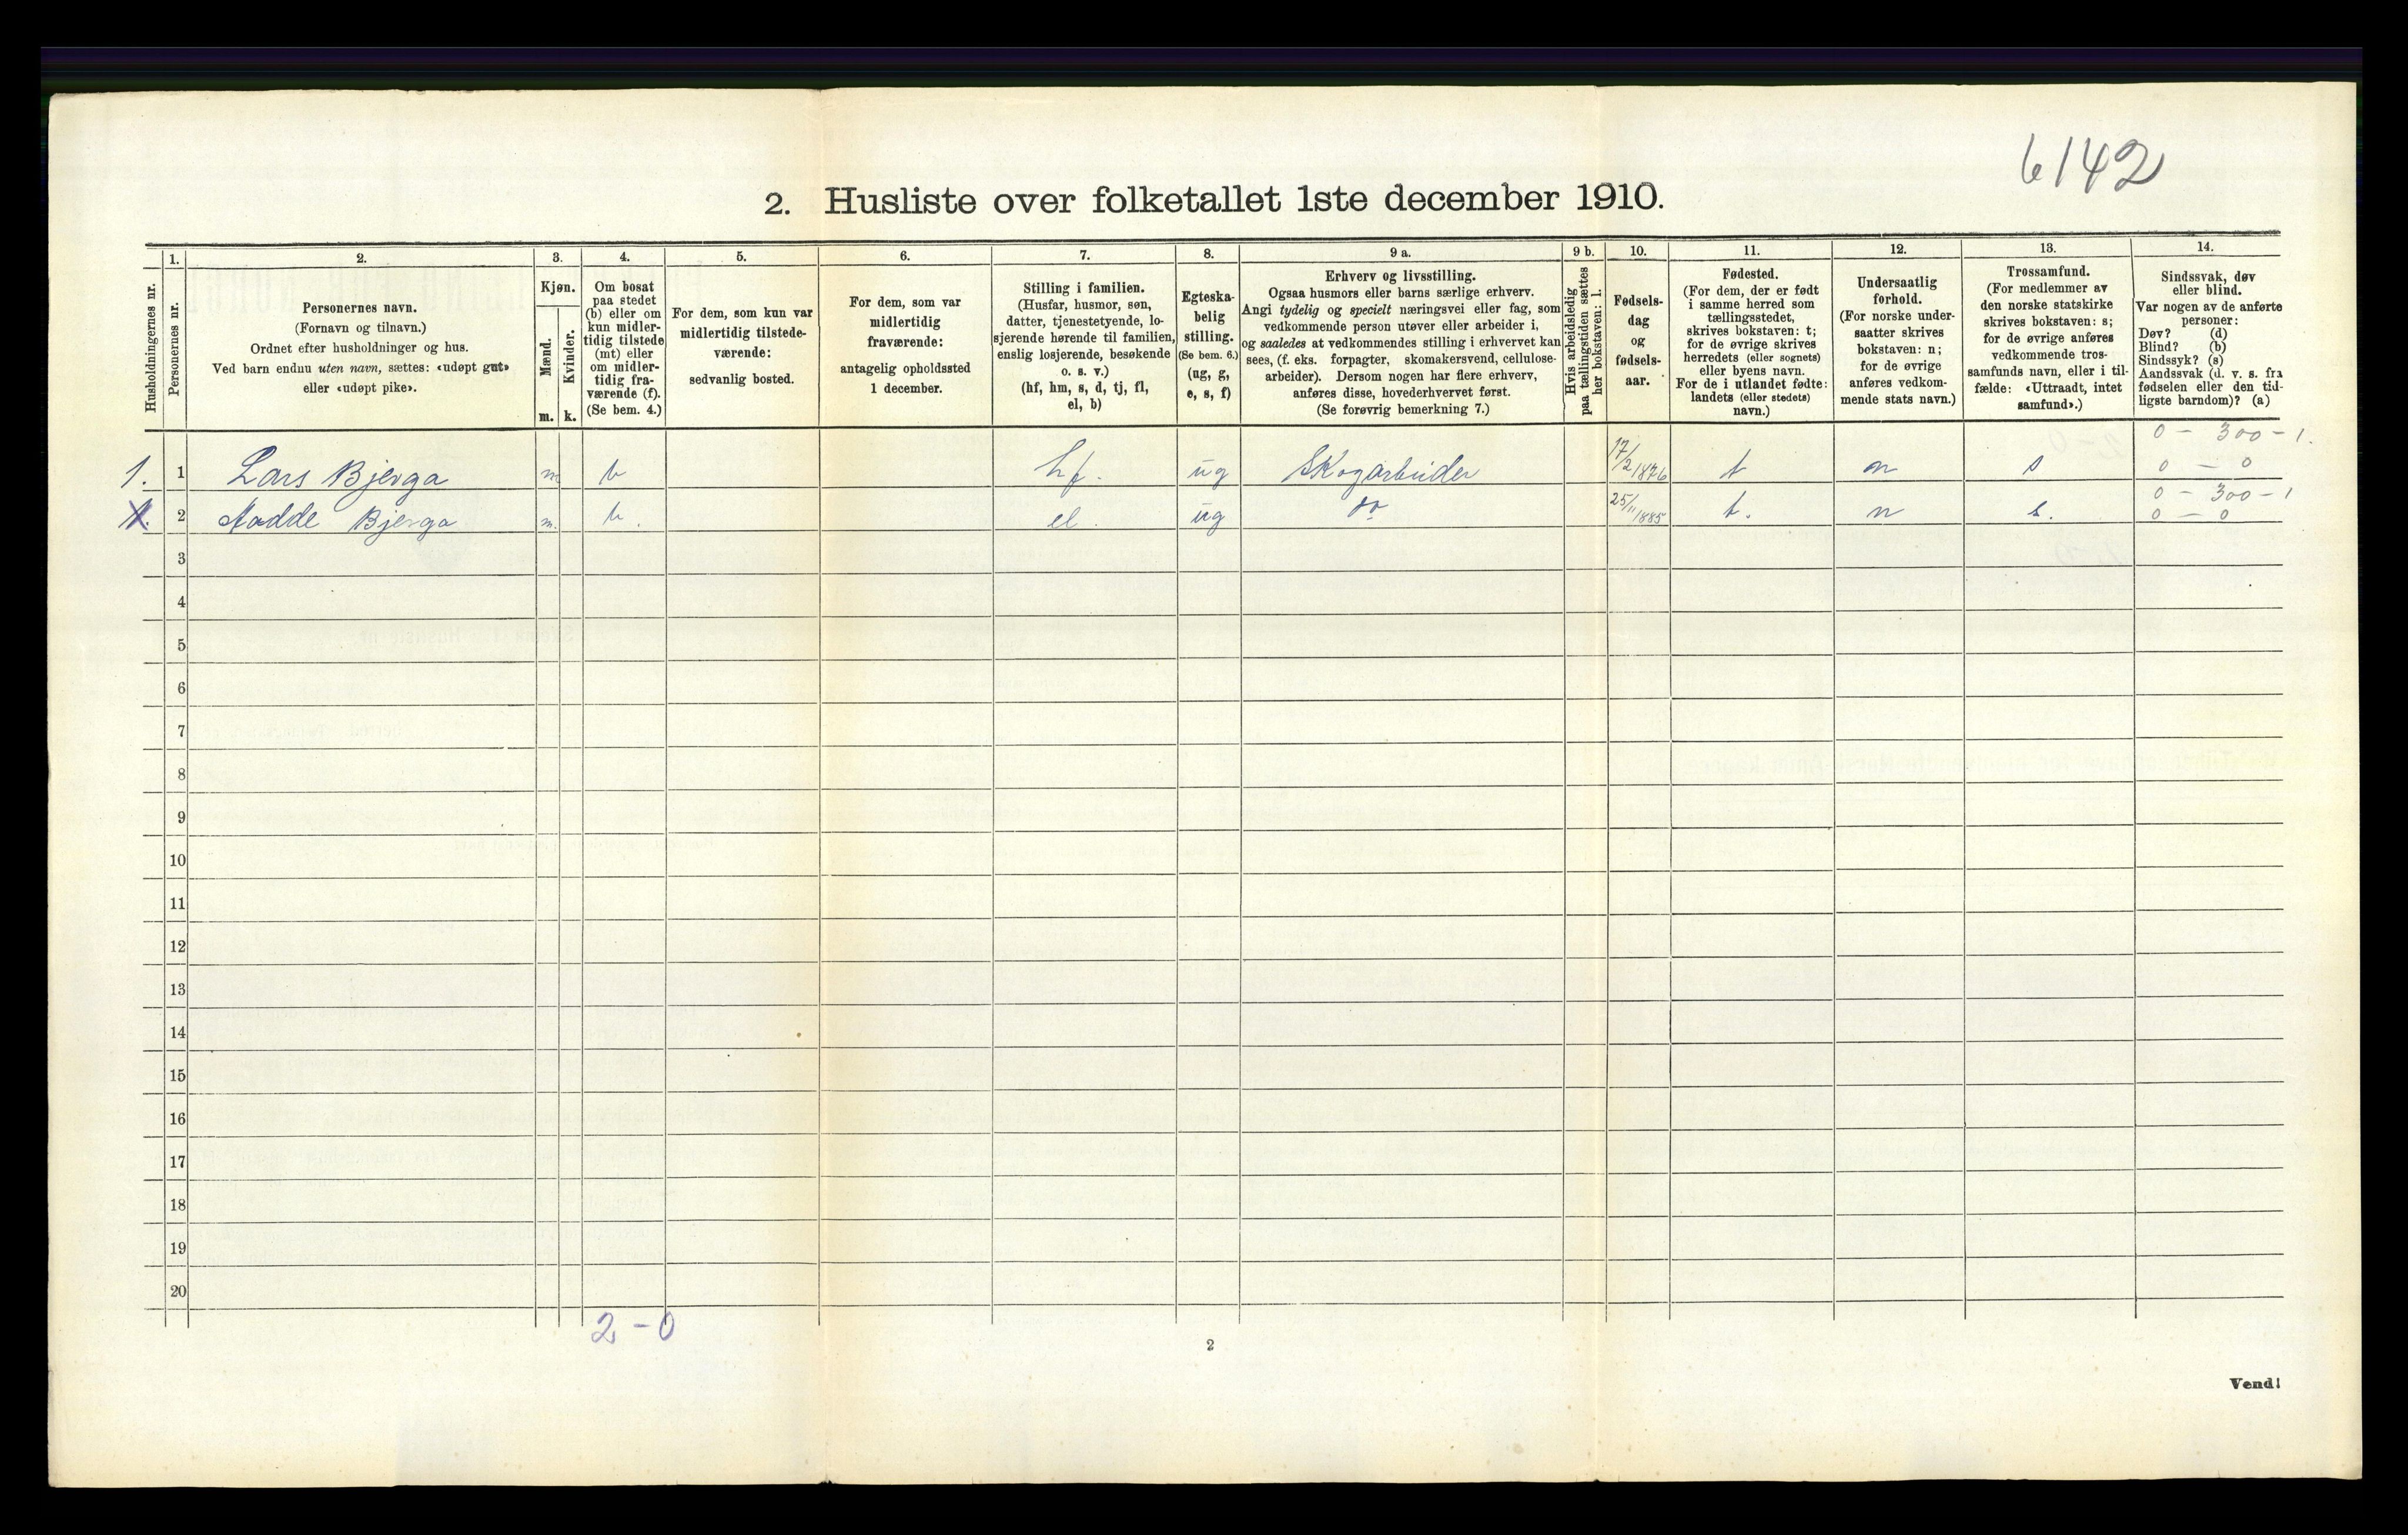 6142
2. Husliste over folketallet 1ste december 1910.
1. 2. 3. 4. 5. 6. 7. 8. 9 a. 9 b. 10. 11. 12. 13. 14.
Husholdningernes nr.
Personernes nr.
Personernes navn.
(Fornavn og tilnavn.)
Ordnet efter husholdninger og hus.
Ved barn endnu uten navn, sættes: «udøpt gut»
eller «udøpt pike».
Kjøn.
Mænd.
m.
Kvinder.
k.
Om bosat
paa stedet
(b) eller om
kun midler-
tidig tilstede
(mt) eller
om midler-
tidig fra-
værende (f).
(Se bem. 4.)
For dem, som kun var
midlertidig tilstede-
værende:
sedvanlig bosted.
For dem, som var
midlertidig
fraværende:
antagelig opholdssted
1 december.
Stilling i familien.
(Husfar, husmor, søn,
datter, tjenestetyende, lo-
sjerende hørende til familien,
enslig losjerende, besøkende
o. s. v.)
(hf, hm, s, d, tj, fl,
el, b)
Egteska-
belig
stilling.
(Se bem. 6.)
(ug, g,
e, s, f)
Erhverv og livsstilling.
Ogsaa husmors eller barns særlige erhverv.
Angi tydelig og specielt næringsvei eller fag, som
vedkommende person utøver eller arbeider i,
og saaledes at vedkommendes stilling i erhvervet kan
sees, (f. eks. forpagter, skomakersvend, cellulose-
arbeider). Dersom nogen har flere erhverv,
anføres disse, hovederhvervet først.
(Se forøvrig bemerkning 7.)
Hvis arbeidsledig
paa tællingstiden sættes
her bokstaven: l.
Fødsels-
dag
og
fødsels-
aar.
Fødested.
(For dem, der er født
i samme herred som
tællingsstedet,
skrives bokstaven: t;
for de øvrige skrives
herredets (eller sognets)
eller byens navn.
For de i utlandet fødte:
landets (eller stedets)
navn.)
Undersaatlig
forhold.
(For norske under-
saatter skrives
bokstaven: n;
for de øvrige
anføres vedkom-
mende stats navn.)
Trossamfund.
(For medlemmer av
den norske statskirke
skrives bokstaven: s;
for de øvrige anføres
vedkommende tros-
samfunds navn, eller i til-
fælde: «Uttraadt, intet
samfund».)
Sindssvak, døv
eller blind.
Var nogen av de anførte
personer:
Døv? (d)
Blind? (b)
Sindssyk? (s)
Aandssvak (d. v. s. fra
fødselen eller den tid-
ligste barndom)? (a)
0 - 300 - 1.
1. 1 Lars Bjerga m b hf. ug Skogarbeider 17/2 1876 t n s 0 - 0
0 - 300 - 1
2 Aadde Bjerga m. b. el. ug do 25/11 1885 t. n s. 0 - 0
3
4
5
6
7
8
9
10
11
12
13
14
15
16
17
18
19
20
2 - 0
2
Vend!